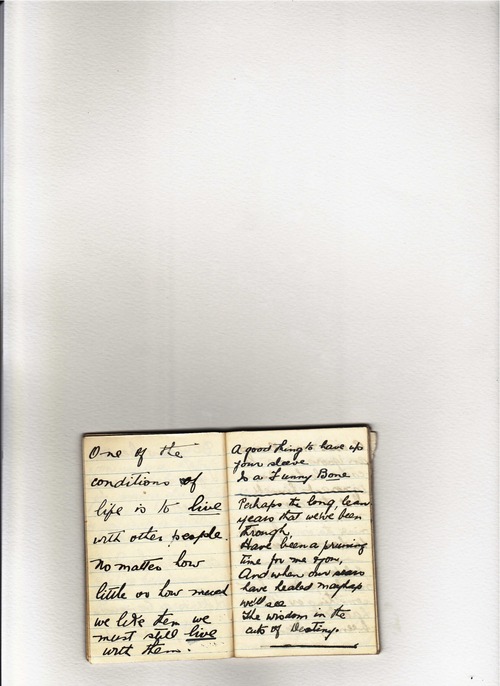 One of the
conditions of
life is to live
with other people.
No matter how
little or how much
we like them we
must still live
with them.
A good thing to have up
your sleeve
Is a Funny Bone
Perhaps the long, lean
years that we've been
through,
Have been a pruning
time for me & you,
And when our scars
have healed mayhap
we'll see
The wisdom in the
acts of Destiny.